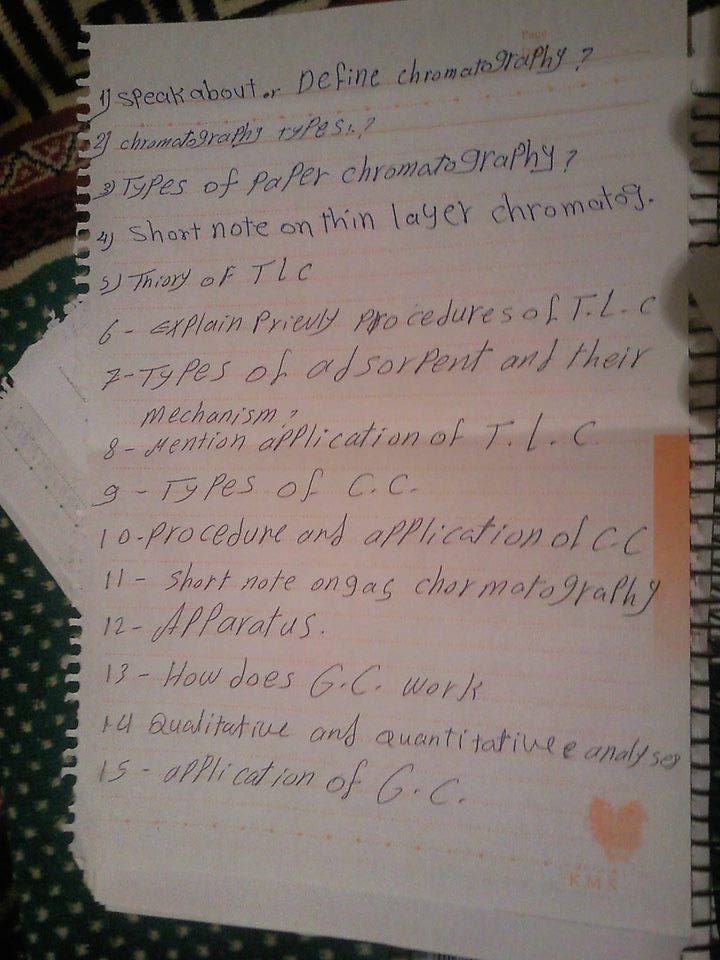 Page
1) speak about or Define chromatography?
2) chromatography types:?
3) Types of paper chromatography?
4) Short note on thin layer chromatog.
5) Thiory of TLC
6- Explain Prievly procedures of T.L.C
7- Types of adsorpent and their
mechanism?
8- Mention application of T.L.C
9- Types of C.C.
10- Procedure and application of C.C
11- Short note on gas chormatography
12- Apparatus.
13- How does G.C. work
14 Qualitative and quantitative e analyses
15- application of G.C.
K.M.S